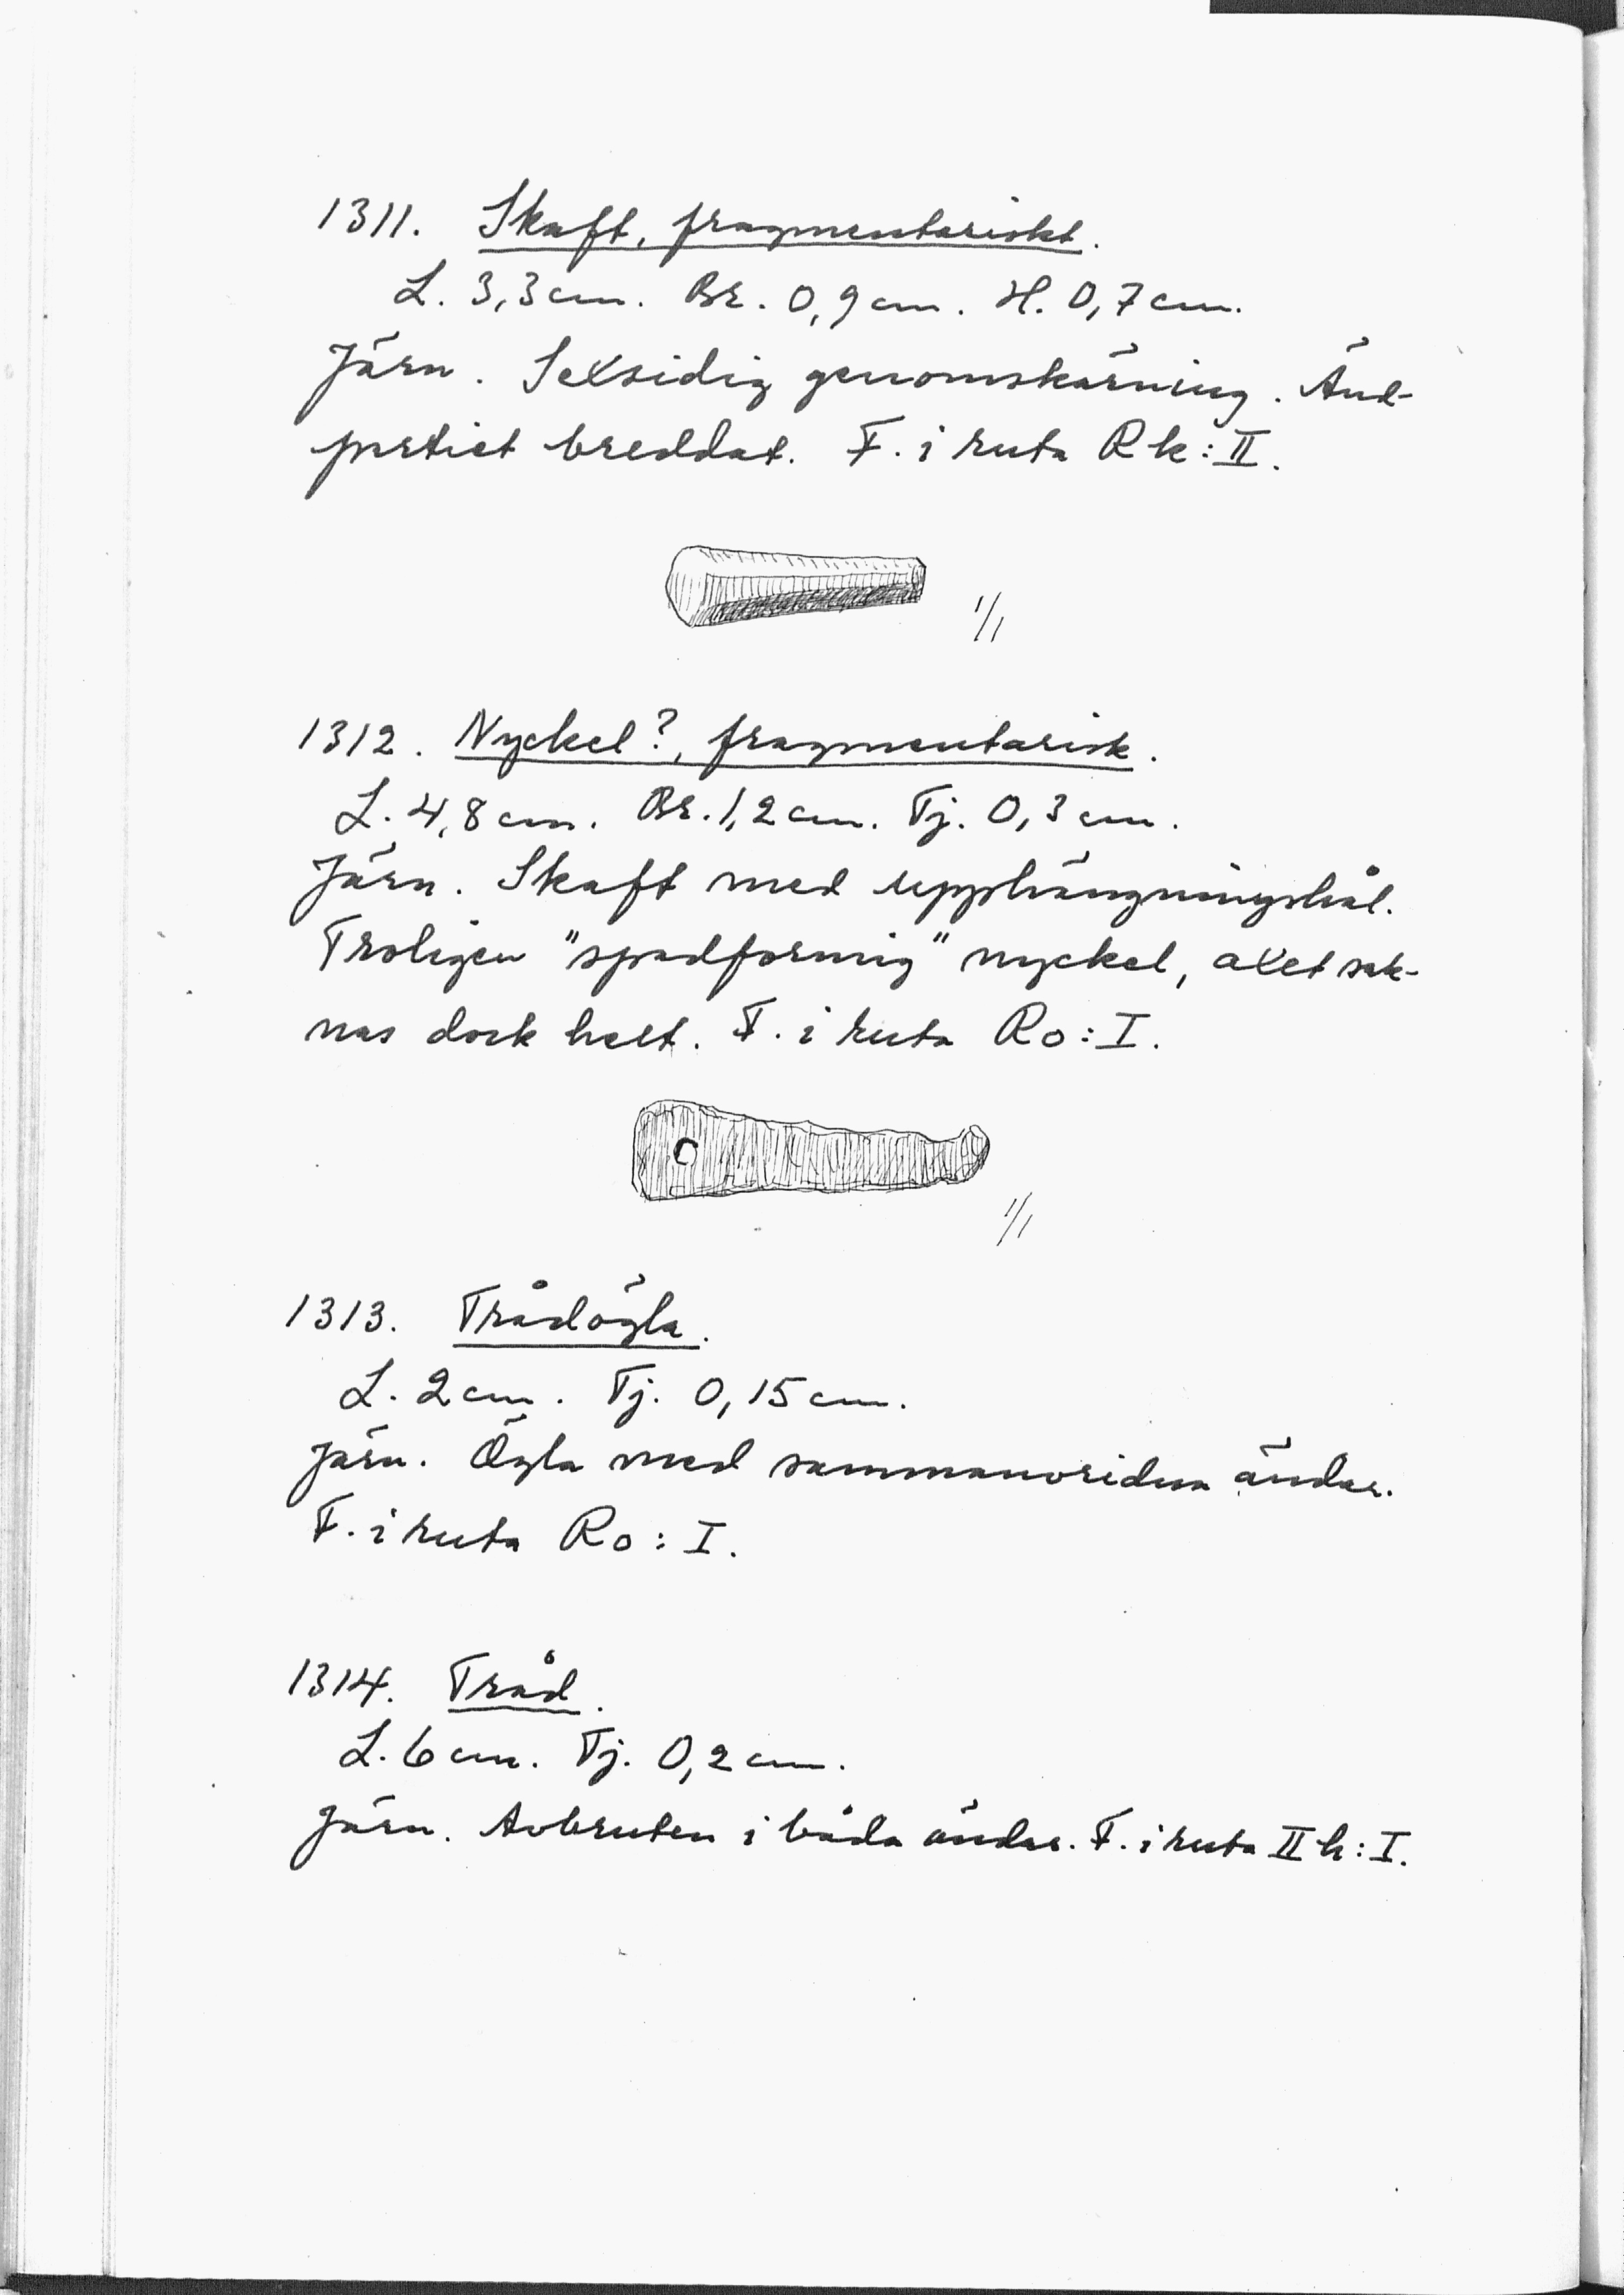 1311. Skaft, fragmentariskt.
L. 3,3 cm. Br. 0,9 cm. H. 0,7 cm.
Järn. Sexsidig genomskärning. Änd-
partiet breddat. F. i ruta Rk: II.
1/1
1312. Nyckel?, fragmentarisk.
L. 4,8 cm. Br. 1,2 cm. Tj. 0,3 cm.
Järn. Skaft med upphängningshål.
Troligen "spadformig" nyckel, axet sak-
nas dock helt. F. i ruta Ro: I.
1/1
1313. Trådögla.
L. 2 cm. Tj. 0,15 cm.
Järn. Ögla med sammanvridna ändar.
F. i ruta Ro: I.
1314. Tråd.
L. 6 cm. Tj. 0,2 cm.
Järn. Avbruten i båda ändar. F. i ruta II h: I.